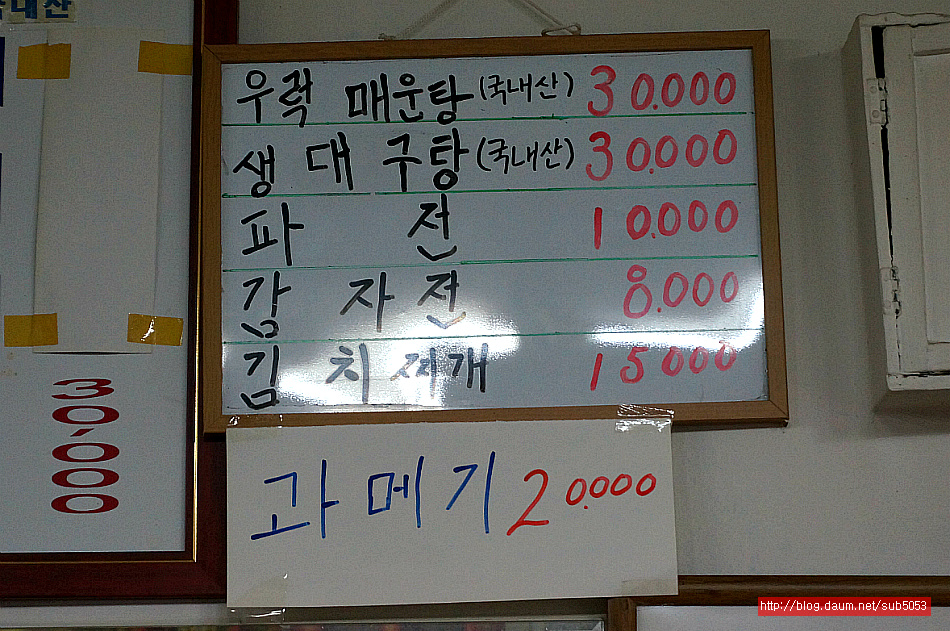 국내산
우럭 매운탕 (국내산) 30.000
생대구탕 (국내산) 30.000
파 전 10.000
감 자 전 8.000
김 치 찌개 15000
30,000
과 메 기 20.000
http://blog.daum.net/sub5053